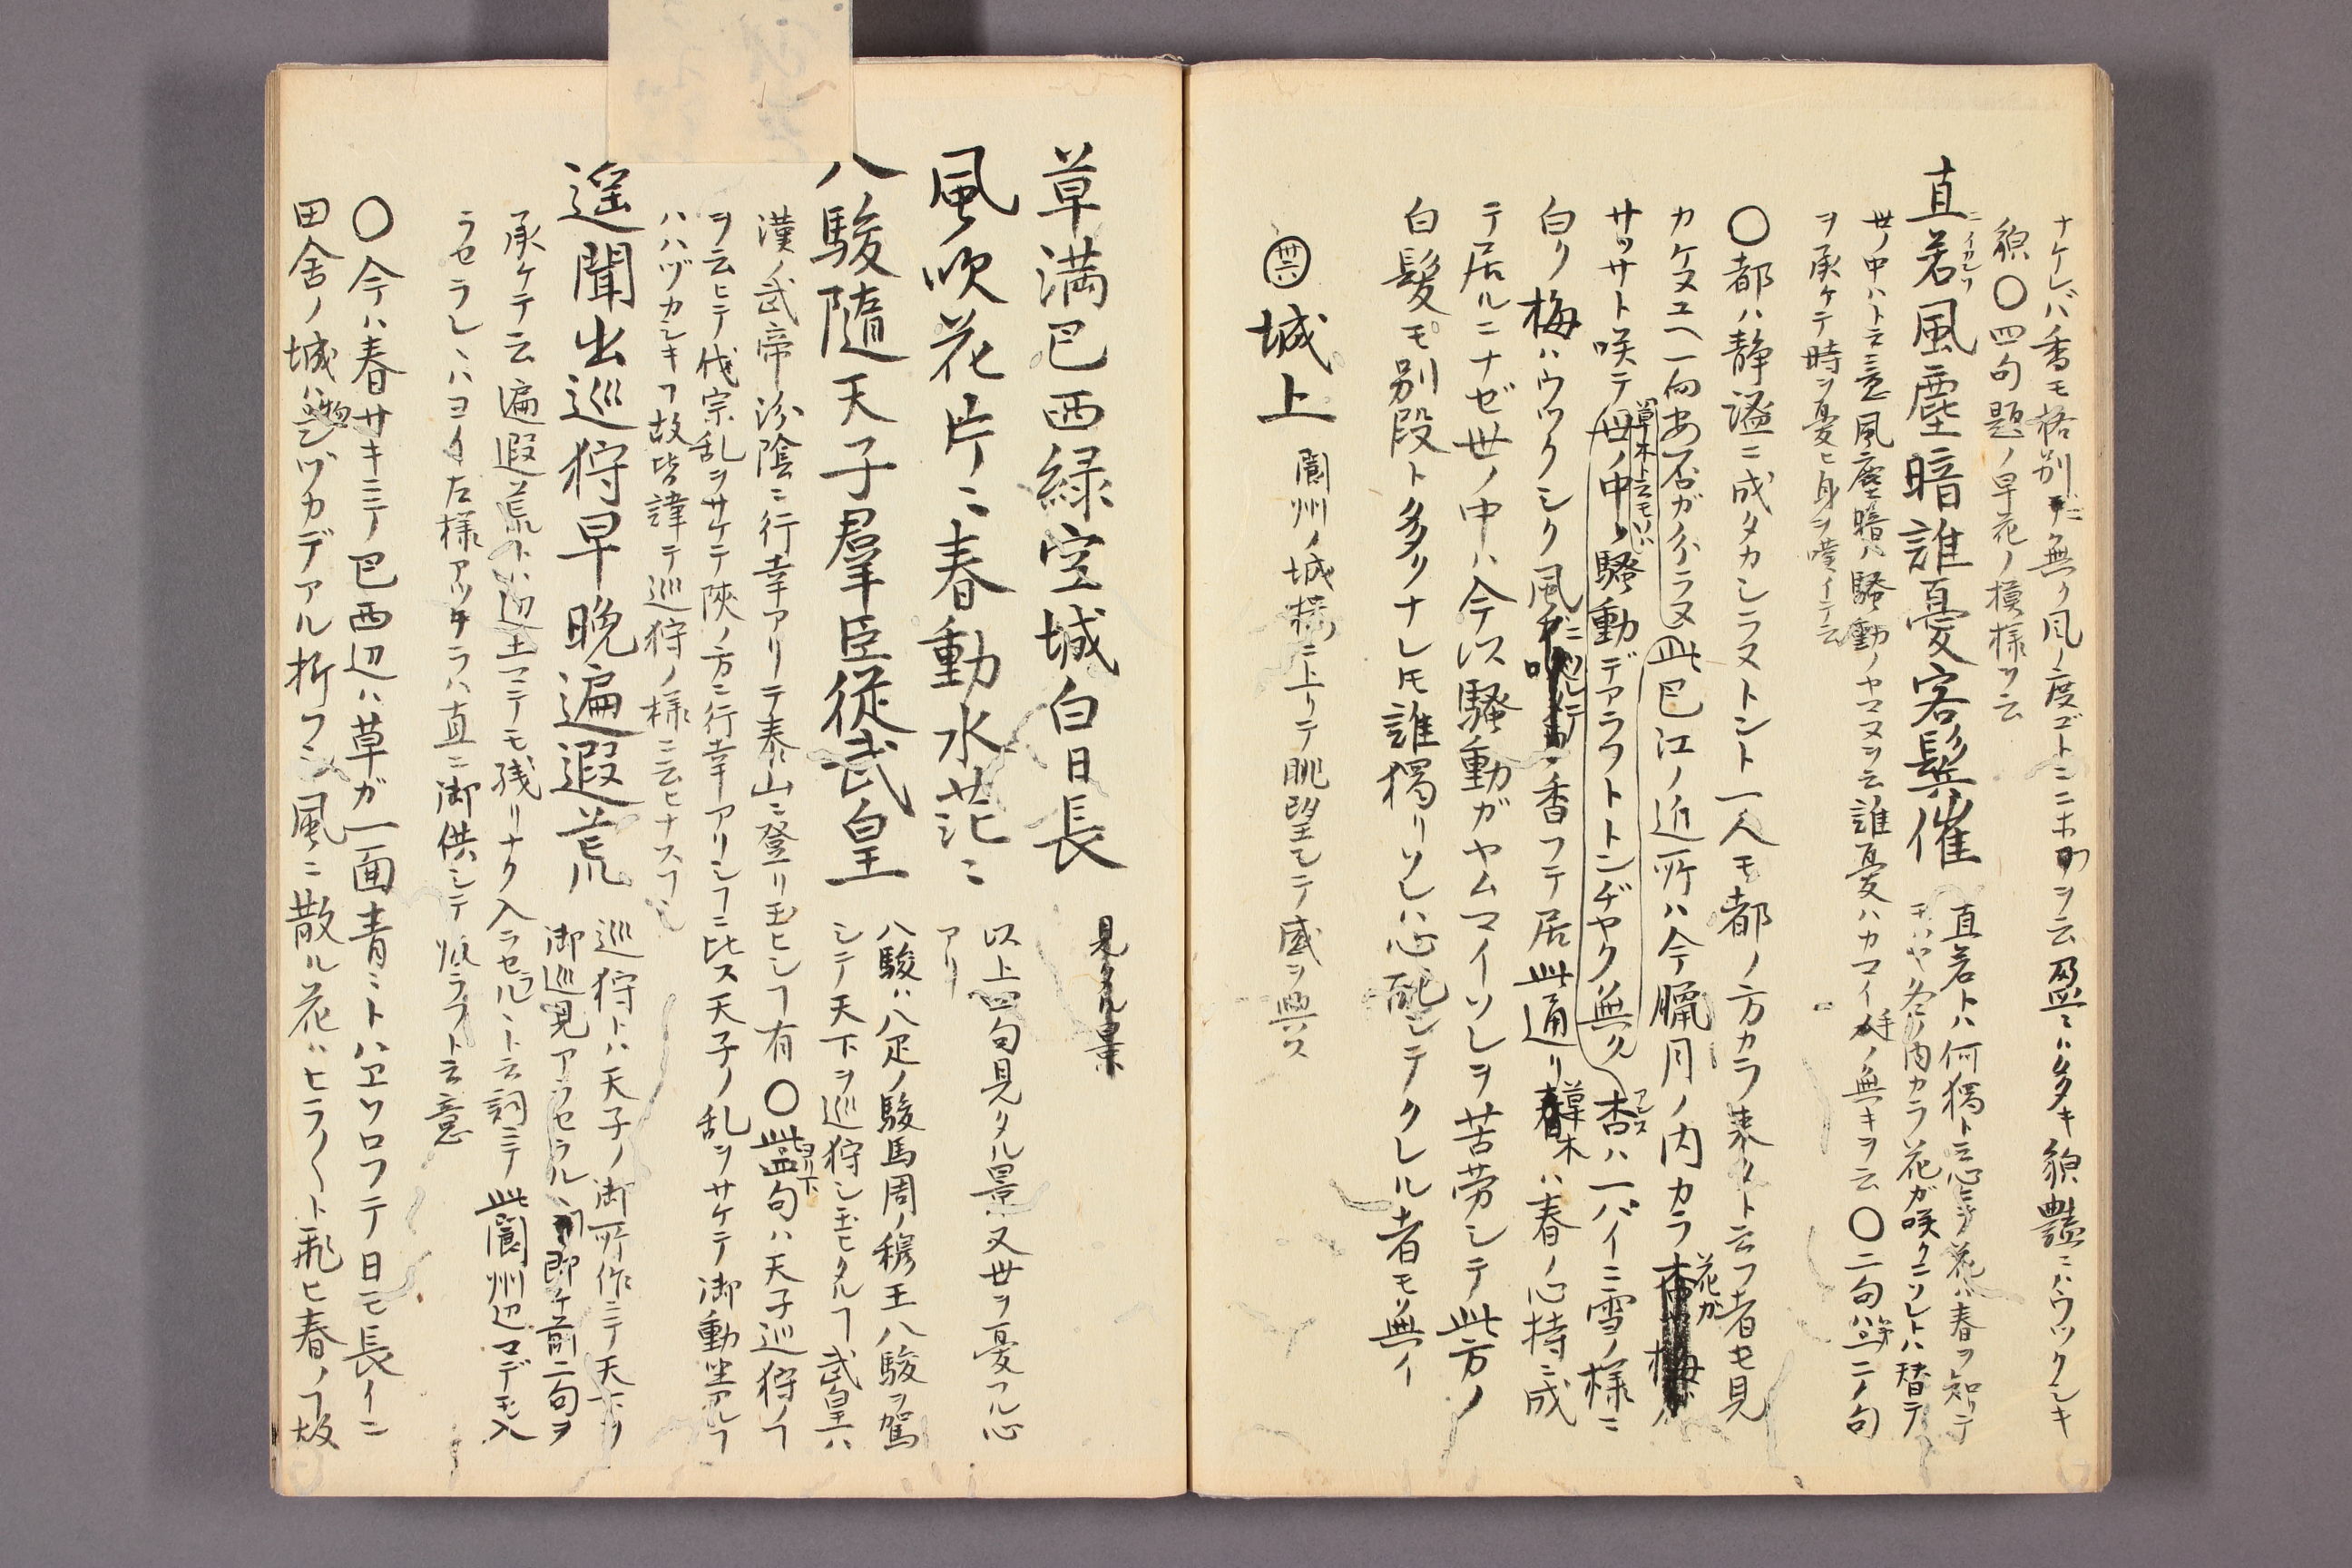 ナケレバ香モ格別ニ無ク風ノ度ゴトニニホフヲ云盈ニハ多キ貌豔ニハウツクシキ
貌〇四句題ノ早花ノ模様ヲ云
直若風塵暗誰憂客鬢催
直若トハ何獨ト云心ニテ花ハ春ヲ知テ
モハヤ冬ノ内カラ花ガ咲クニソレトハ替テ
世ノ中ハト云意風塵暗ハ騒動ノヤマヌヲ云誰憂ハカマイ手ノ無キヲ云〇二句ハ一二ノ句
ヲ承ケテ時ヲ憂ヒ身ヲ嘆イテ云
〇都ハ静謐ニ成タカシラヌトント一人モ都ノ方カラ来タト云フ者モ見
カケヌユヘ一向安否ガ分ラヌ此巴江ノ近所ハ今臘月ノ内カラ花ガ
サッサト咲テ世ノ中ノ騒動デアラフトトンヂヤク無ク杏ハ一パイニ雪ノ様ニ
草木ト云モノハ
白ク梅ハウツクシク風ニ香フテ居此通リ草木ハ春ノ心持ニ成
テ居ルニナゼ世ノ中ハ今以騒動ガヤムマイソレヲ苦労シテ此方ノ
白髪モ別段ト多クナレ𪜈誰獨リソレハ心配シテクレル者モ無イ
㊱城上 閬州ノ城樓ニ上リテ眺望シテ感ヲ興ス
草満巴西緑空城白日長
風吹花片ミ春動水茫ミ
以上四句見タル景又世ヲ憂フル心
アリ
八駿隨天子羣臣從武皇
八駿ハ八疋ノ駿馬周ノ穆王八駿ヲ駕
シテ天下ヲ巡狩シ玉ヒタルヿ武皇ハ
漢ノ武帝汾陰ニ行幸アリテ泰山ニ登リ玉ヒシヿ有〇此二句ハ天子巡狩ノヿ
ヲ云ヒテ代宗乱ヲサケテ陝ノ方ニ行幸アリシヿニ比ス天子ノ乱ヲサケテ御動坐アルヿ
ハハヅカシキヿ故皆諱テ巡狩ノ様ニ云ヒナスヿ也
遥聞出巡狩早晩遍遐荒
巡狩トハ天子ノ御所作ニテ天下ヲ
御巡見アラセラルヽ即ケ前二句ヲ
承ケテ云遍遐荒トハ辺土マテモ残リナク入ラセラルヽト云詞ニテ此閬州辺マデモ入
ラセラレヽハヨイ左様アツタラハ直ニ御供シテ帰ラフト云意
〇今ハ春サキニテ巴西辺ハ草ガ一面青ミトハエソロフテ日モ長イニ
田舎ノ城ハ物シヅカデアル折フシ風ニ散ル花ハヒラ〳〵ト飛ヒ春ノヿ故